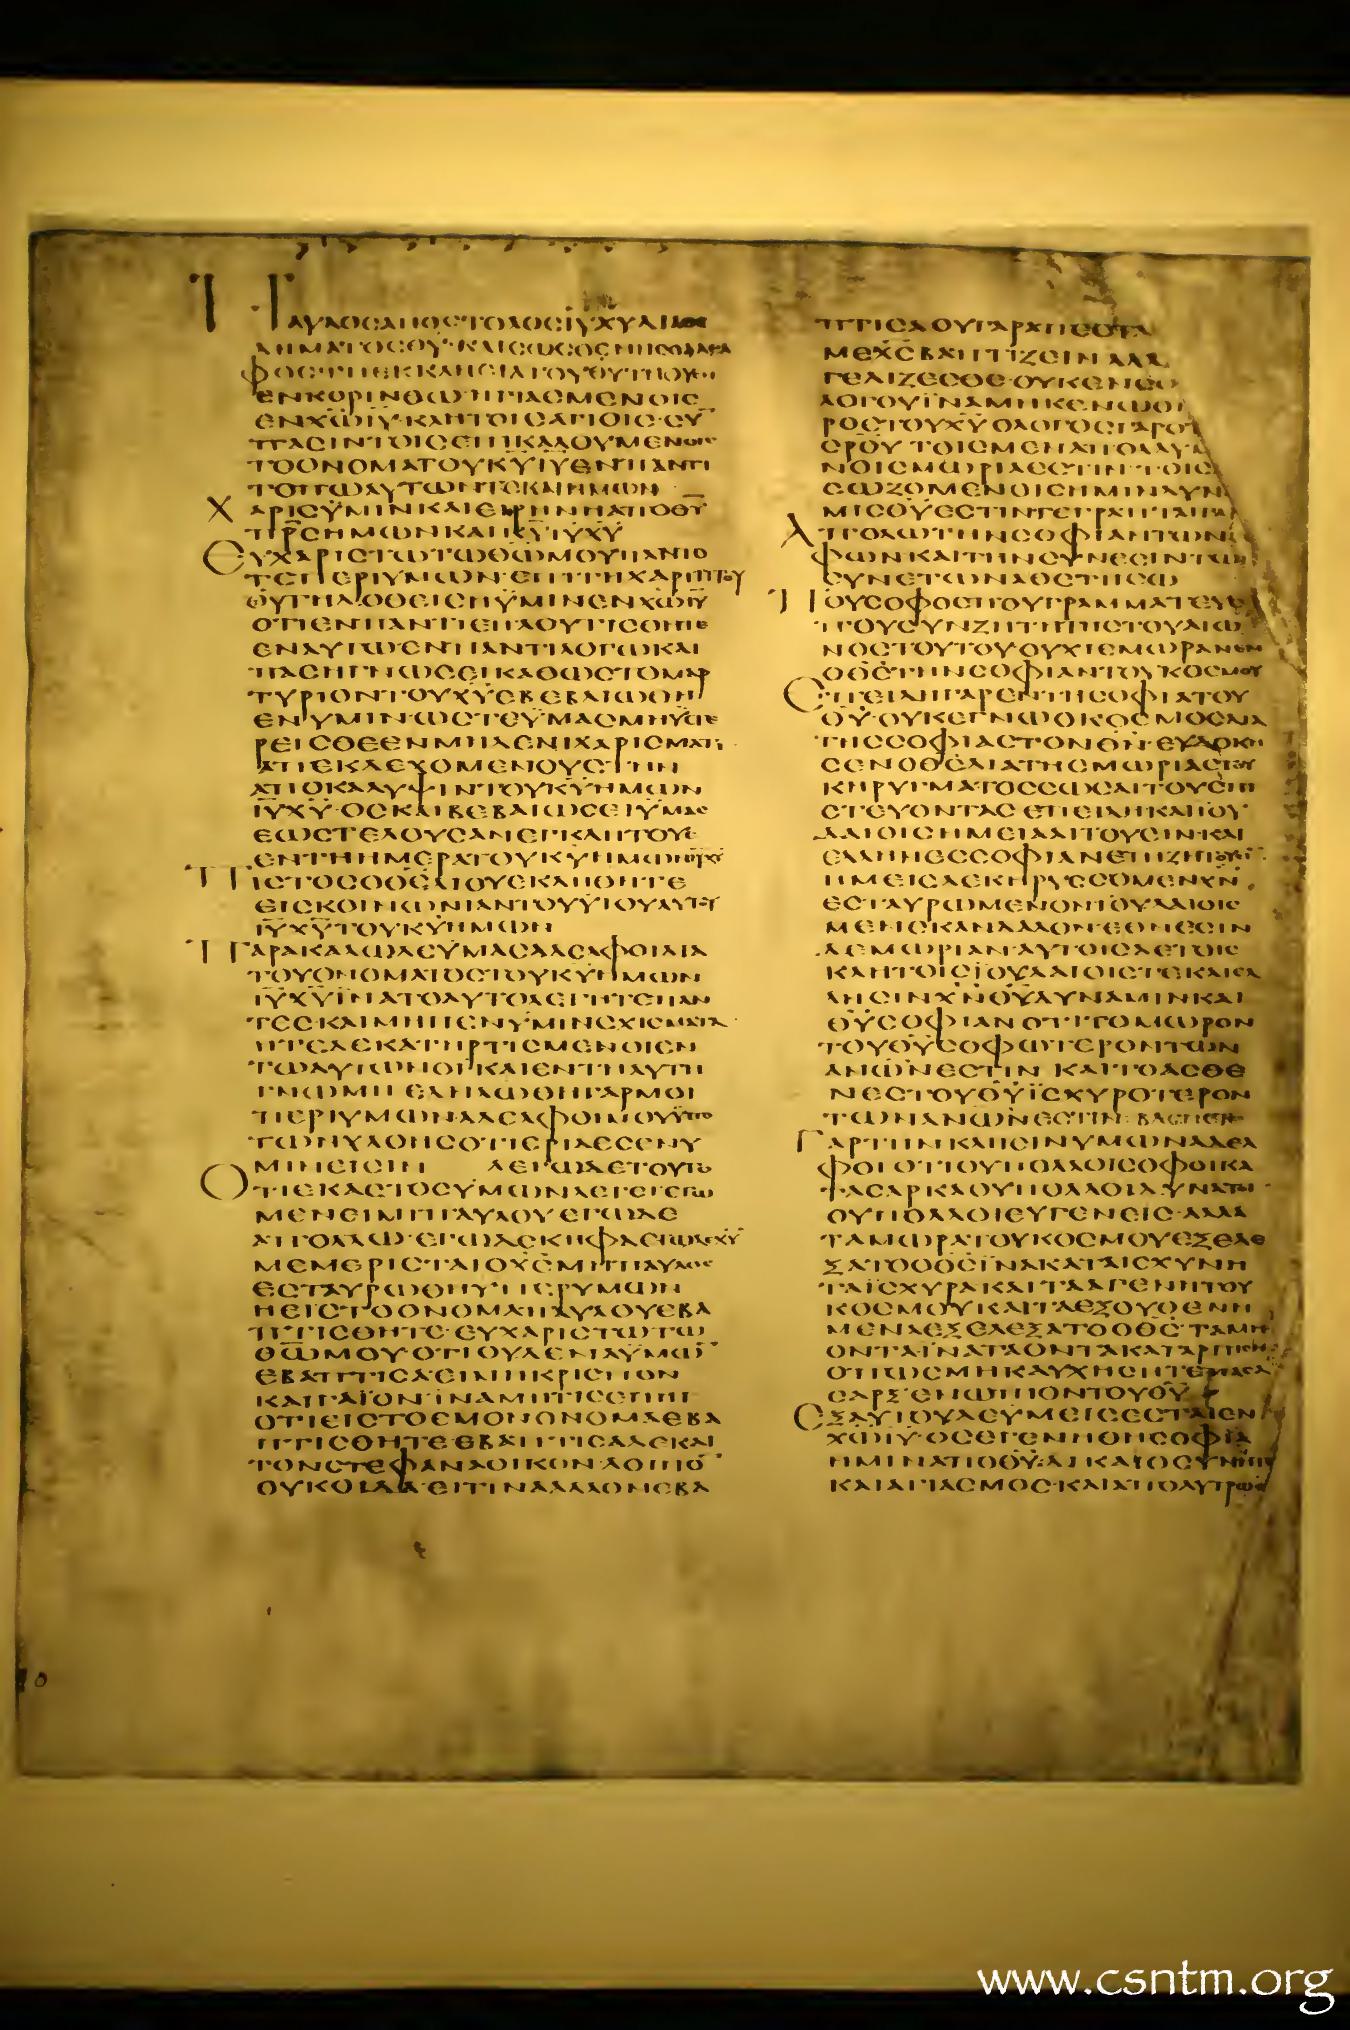 ΠΑΥΛΟΣΑΠΟΣΤΟΛΟΣΙΥΧΥΔΙΑΘΕ
ΛΗΜΑΤΟΣΘΥ·ΚΑΙΣΩΣΘΕΝΗΣΟΑΔΕΛ
ΦΟΣ·ΤΗΕΚΚΛΗΣΙΑΤΟΥΘΥΤΗΟΥΣΗ
ΕΝΚΟΡΙΝΘΩ·ΗΓΙΑΣΜΕΝΟΙΣ
ΕΝΧΩΙΥ·ΚΛΗΤΟΙΣΑΓΙΟΙΣ·ΣΥ̅
ΠΑΣΙΝΤΟΙΣΕΠΙΚΑΛΟΥΜΕΝΟΙΣ
ΤΟΟΝΟΜΑΤΟΥΚΥΙΥΕΝΠΑΝΤΙ
ΤΟΠΩΑΥΤΩΝΤΕΚΑΙΗΜΩΝ
ΧΑΡΙΣΥΜΙΝΚΑΙΕΙΡΗΝΗΑΠΟΘΥ
ΠΡΣΗΜΩΝΚΑΙΚΥΙΥΧΥ
ΕΥΧΑΡΙΣΤΩΤΩΘΩΜΟΥΠΑΝΤΟ
ΤΕΠΕΡΙΥΜΩΝ·ΕΠΙΤΗΧΑΡΙΤΙΤΟΥ
ΘΥΤΗΔΟΘΕΙΣΗΥΜΙΝΕΝΧΩΙΥ
ΟΤΙΕΝΠΑΝΤΙΕΠΛΟΥΤΙΣΘΗΤΕ
ΕΝΑΥΤΩΕΝΠΑΝΤΙΛΟΓΩΚΑΙ
ΠΑΣΗΓΝΩΣΕΙΚΑΘΩΣΤΟΜΑΡ
ΤΥΡΙΟΝΤΟΥΧΥΕΒΕΒΑΙΩΘΗ
ΕΝΥΜΙΝ·ΩΣΤΕΥΜΑΣΜΗΥΣΤΕ
ΡΕΙΣΘΕΕΝΜΗΔΕΝΙΧΑΡΙΣΜΑΤΙ·
ΑΠΕΚΔΕΧΟΜΕΝΟΥΣΤΗΝ
ΑΠΟΚΑΛΥΨΙΝΤΟΥΚΥΗΜΩΝ
ΙΥΧΥ·ΟΣΚΑΙΒΕΒΑΙΩΣΕΙΥΜΑΣ
ΕΩΣΤΕΛΟΥΣΑΝΕΓΚΛΗΤΟΥΣ
ΕΝΤΗΗΜΕΡΑΤΟΥΚΥΗΜΩΝΙΥΧΥ
ΠΙΣΤΟΣΟΘΣΔΙΟΥΕΚΛΗΘΗΤΕ
ΕΙΣΚΟΙΝΩΝΙΑΝΤΟΥΥΙΟΥΑΥΤΟΥ
ΙΥΧΥΤΟΥΚΥΗΜΩΝ
ΠΑΡΑΚΑΛΩΔΕΥΜΑΣΑΔΕΛΦΟΙΔΙΑ
ΤΟΥΟΝΟΜΑΤΟΣΤΟΥΚΥΗΜΩΝ
ΙΥΧΥΙΝΑΤΟΑΥΤΟΛΕΓΗΤΕΠΑΝ
ΤΕΣΚΑΙΜΗΗΕΝΥΜΙΝΣΧΙΣΜΑΤΑ·
ΗΤΕΔΕΚΑΤΗΡΤΙΣΜΕΝΟΙΕΝ
ΤΩΑΥΤΩΝΟΙΚΑΙΕΝΤΗΑΥΤΗ
ΓΝΩΜΗ·ΕΔΗΛΩΘΗΓΑΡΜΟΙ
ΠΕΡΙΥΜΩΝΑΔΕΛΦΟΙΜΟΥΥΠΟ
ΤΩΝΧΛΟΗΣΟΤΙΕΡΙΔΕΣΕΝΥ
ΜΙΝΕΙΣΙΝ ΛΕΓΩΔΕΤΟΥΤΟ
ΟΤΙΕΚΑΣΤΟΣΥΜΩΝΛΕΓΕΙΕΓΩ
ΜΕΝΕΙΜΙΠΑΥΛΟΥΕΓΩΔΕ
ΑΠΟΛΛΩ·ΕΓΩΔΕΚΗΦΑΕΓΩΔΕΧΥ
ΜΕΜΕΡΙΣΤΑΙΟΧΣΜΗΠΑΥΛΟΣ
ΕΣΤΑΥΡΩΘΗΥΠΕΡΥΜΩΝ
ΗΕΙΣΤΟΟΝΟΜΑΠΑΥΛΟΥΕΒΑ
ΠΤΙΣΘΗΤΕ·ΕΥΧΑΡΙΣΤΩΤΩ
ΘΩΜΟΥ·ΟΤΙΟΥΔΕΝΑΥΜΩ̅
ΕΒΑΠΤΙΣΑΕΙΜΗΚΡΙΣΠΟΝ
ΚΑΙΓΑΙΟΝ·ΙΝΑΜΗΤΙΣΕΙΠΗ
ΟΤΙΕΙΣΤΟΕΜΟΝΟΝΟΜΑΕΒΑ
ΠΤΙΣΘΗΤΕ·ΕΒΑΠΤΙΣΑΔΕΚΑΙ
ΤΟΝΣΤΕΦΑΝΑΟΙΚΟΝ·ΛΟΙΠΟ̅
ΟΥΚΟΙΔΑ·ΕΙΤΙΝΑΑΛΛΟΝΕΒΑ
ΠΤΙΣΑΟΥΓΑΡΑΠΕΣΤΑ
ΜΕΧΣΒΑΠΤΙΖΕΙΝΑΛΛ
ΓΕΛΙΖΕΣΘΕ·ΟΥΚΕΝΣΟ
ΛΟΓΟΥΙΝΑΜΗΚΕΝΩΘΗ
ΡΟΣΤΟΥΧΥΟΛΟΓΟΣΓΑΡΟΤ
ΣΡΟΥ·ΤΟΙΣΜΕΝΑΠΟΛΛΥΜ
ΝΟΙΣΜΩΡΙΑΕΣΤΙΝ·ΤΟΙΣ
ΣΩΖΟΜΕΝΟΙΣΗΜΙΝΔΥΝ
ΜΙΣΘΥΕΣΤΙΝΓΕΓΡΑΠΤΑΙΓΑΡ
ΑΠΟΛΩΤΗΝΣΟΦΙΑΝΤΩΝΣ
ΦΩΝΚΑΙΤΗΝΣΥΝΕΣΙΝΤΩΝ
ΣΥΝΕΤΩΝΑΘΕΤΗΣΩ
ΠΟΥΣΟΦΟΣΠΟΥΓΡΑΜΜΑΤΕΥΣ
ΠΟΥΣΥΝΖΗΤΗΤΗΣΤΟΥΑΙΩ
ΝΟΣΤΟΥΤΟΥΟΥΧΙΕΜΩΡΑΝΕΝ
ΟΘΣΤΗΝΣΟΦΙΑΝΤΟΥΚΟΣΜΟΥ
ΕΠΕΙΔΗΓΑΡΕΝΤΗΣΟΦΙΑΤΟΥ
ΘΥ·ΟΥΚΕΓΝΩΟΚΟΣΜΟΣΔΙΑ
ΤΗΣΣΟΦΙΑΣΤΟΝΘΝ·ΕΥΔΟΚΗ
ΣΕΝΟΘΣΔΙΑΤΗΣΜΩΡΙΑΣΤΟΥ
ΚΗΡΥΓΜΑΤΟΣΣΩΣΑΙΤΟΥΣΠΙ
ΣΤΕΥΟΝΤΑΣ·ΕΠΕΙΔΗΚΑΙΙΟΥ
ΔΑΙΟΙΣΗΜΕΙΑΑΙΤΟΥΣΙΝ·ΚΑΙ
ΕΛΛΗΝΕΣΣΟΦΙΑΝΕΠΙΖΗΤΟΥΣΙ̅·
ΗΜΕΙΣΔΕΚΗΡΥΣΣΟΜΕΝΧΝ·
ΕΣΤΑΥΡΩΜΕΝΟΝΙΟΥΔΑΙΟΙΣ
ΜΕΝΣΚΑΝΔΑΛΟΝ·ΕΘΝΕΣΙΝ
ΔΕΜΩΡΙΑΝ·ΑΥΤΟΙΣΔΕΤΟΙΣ
ΚΛΗΤΟΙΣΙΟΥΔΑΙΟΙΣΤΕΚΑΙΕΛ
ΛΗΣΙΝΧΝΘΥΔΥΝΑΜΙΝΚΑΙ
ΘΥΣΟΦΙΑΝΟΤΙΤΟΜΩΡΟΝ
ΤΟΥΘΥΣΟΦΩΤΕΡΟΝΤΩΝ
ΑΝΩΝΕΣΤΙΝ·ΚΑΙΤΟΑΣΘΕ
ΝΕΣΤΟΥΘΥΙΣΧΥΡΟΤΕΡΟΝ
ΤΩΝΑΝΩΝΕΣΤΙΝ·ΒΛΕΠΕΤΕ
ΓΑΡΤΗΝΚΛΗΣΙΝΥΜΩΝΑΔΕΛ
ΦΟΙΟΤΙΟΥΠΟΛΛΟΙΣΟΦΟΙΚΑ
ΤΑΣΑΡΚΑΟΥΠΟΛΛΟΙΔΥΝΑΤΟΙ·
ΟΥΠΟΛΛΟΙΕΥΓΕΝΕΙΣ·ΑΛΛΑ
ΤΑΜΩΡΑΤΟΥΚΟΣΜΟΥΕΞΕΛΕ
ΞΑΤΟΟΘΣΙΝΑΚΑΤΑΙΣΧΥΝΗ
ΤΑΙΣΧΥΡΑΚΑΙΤΑΑΓΕΝΗΤΟΥ
ΚΟΣΜΟΥΚΑΙΤΑΕΞΟΥΘΕΝΗ
ΜΕΝΑΕΞΕΛΕΞΑΤΟΟΘΣ·ΤΑΜΗ
ΟΝΤΑΙΝΑΤΑΟΝΤΑΚΑΤΑΡΓΗΣΗ·
ΟΠΩΣΜΗΚΑΥΧΗΣΗΤΕΠΑΣΑ
ΣΑΡΞΕΝΩΠΙΟΝΤΟΥΘΥ
ΕΞΑΥΤΟΥΔΕΥΜΕΙΣΕΣΤΑΙΕΝ
ΧΩΙΥ·ΟΣΕΓΕΝΗΘΗΣΟΦΙΑ
ΗΜΙΝΑΠΟΘΥ·ΔΙΚΑΙΟΣΥΝΗΤΕ
ΚΑΙΑΓΙΑΣΜΟΣ·ΚΑΙΑΠΟΛΥΤΡΩΣΙΣ
www.csntm.org